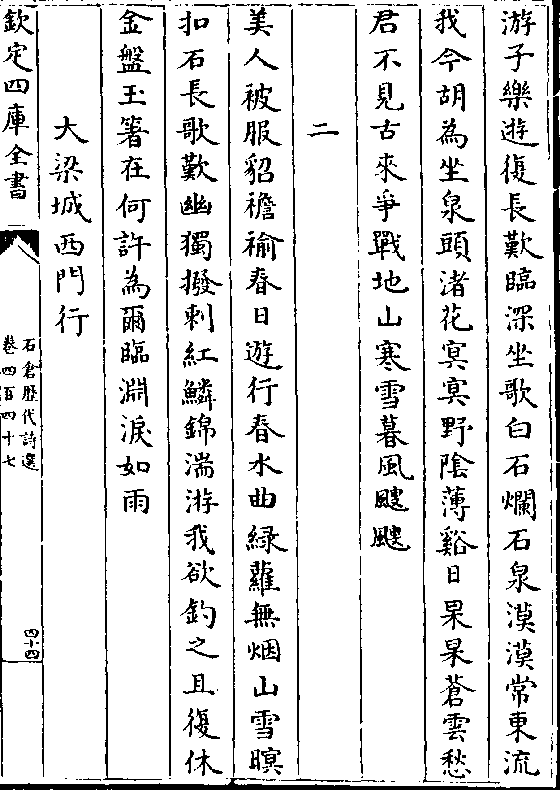 游子樂遊復長歎臨深坐歌白石爛石泉漠漠常東流
我今胡為坐泉頭渚花㝠㝠野陰薄谿日杲杲蒼雲愁
君不見古來爭戰地山寒雪暮風颼颼
二
美人被服貂襜褕春日遊行春水曲緑蘿無烟山雪暝
扣石長歌歎幽獨撥刺紅鱗錦湍游我欲釣之且復休
金盤玉箸在何許為爾臨淵淚如雨
大梁城西門行
欽定四庫全書
石倉歷代詩選
卷四百四十七
四十四